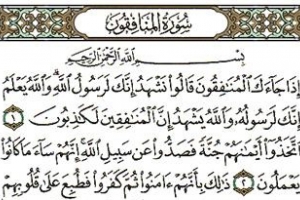 سورة المنافقون
بِسْمِ اللَّهِ الرَّحْمَٰنِ الرَّحِيمِ
إِذَا جَاءَكَ الْمُنَافِقُونَ قَالُوا نَشْهَدُ إِنَّكَ لَرَسُولُ اللَّهِ وَاللَّهُ يَعْلَمُ
إِنَّكَ لَرَسُولُهُ وَاللَّهُ يَشْهَدُ إِنَّ الْمُنَافِقِينَ لَكَاذِبُونَ ١
اتَّخَذُوا أَيْمَانَهُمْ جُنَّةً فَصَدُّوا عَن سَبِيلِ اللَّهِ إِنَّهُمْ سَاءَ مَا كَانُوا
يَعْمَلُونَ ٢ ذَٰلِكَ بِأَنَّهُمْ آمَنُوا ثُمَّ كَفَرُوا فَطُبِعَ عَلَىٰ قُلُوبِهِمْ